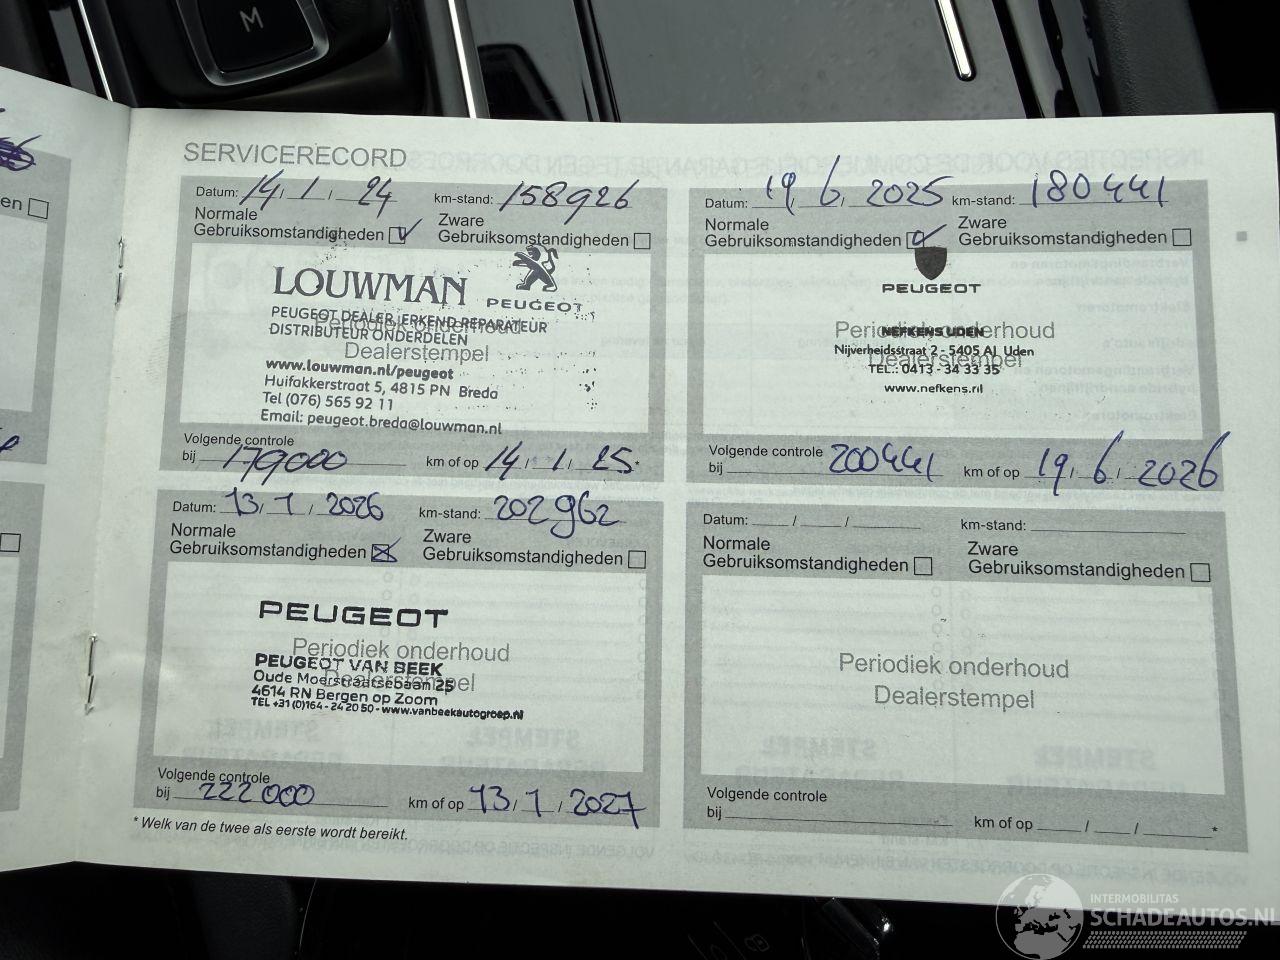 M
SERVICERECORD
Datum: 14 / 1 / 24 km-stand: 158926
Normale
Gebruiksomstandigheden
Zware
Gebruiksomstandigheden
LOUWMAN
PEUGEOT
PEUGEOT DEALER, ERKEND REPARATEUR
DISTRIBUTEUR ONDERDELEN
Periodiek onderhoud
Dealerstempel
www.louwman.nl/peugeot
Huifakkerstraat 5, 4815 PN Breda
Tel (076) 565 92 11
Email: peugeot.breda@louwman.nl
Volgende controle
bij 179000 km of op 14 / 1 / 25*
Datum: 19 / 6 / 2025 km-stand: 180441
Normale
Gebruiksomstandigheden
Zware
Gebruiksomstandigheden
PEUGEOT
Periodiek onderhoud
NEFKENS UDEN
Nijverheidsstraat 2 - 5405 AJ Uden
Dealerstempel
TEL.: 0413 - 34 33 35
www.nefkens.nl
Volgende controle
bij 200441 km of op 19 / 6 / 2026
Datum: 13 / 1 / 2026 km-stand: 202962
Normale
Gebruiksomstandigheden
Zware
Gebruiksomstandigheden
PEUGEOT
Periodiek onderhoud
PEUGEOT VAN BEEK
Dealerstempel
Oude Moerstraatsebaan 25
4614 RN Bergen op Zoom
TEL +31 (0)164 - 24 20 50 - www.vanbeekautogroep.nl
Volgende controle
bij 222000 km of op 13 / 1 / 2027
* Welk van de twee als eerste wordt bereikt.
Datum: / / km-stand:
Normale
Gebruiksomstandigheden
Zware
Gebruiksomstandigheden
Periodiek onderhoud
Dealerstempel
Volgende controle
bij km of op / / *
en
INTERMOBILITAS
SCHADEAUTOS.NL